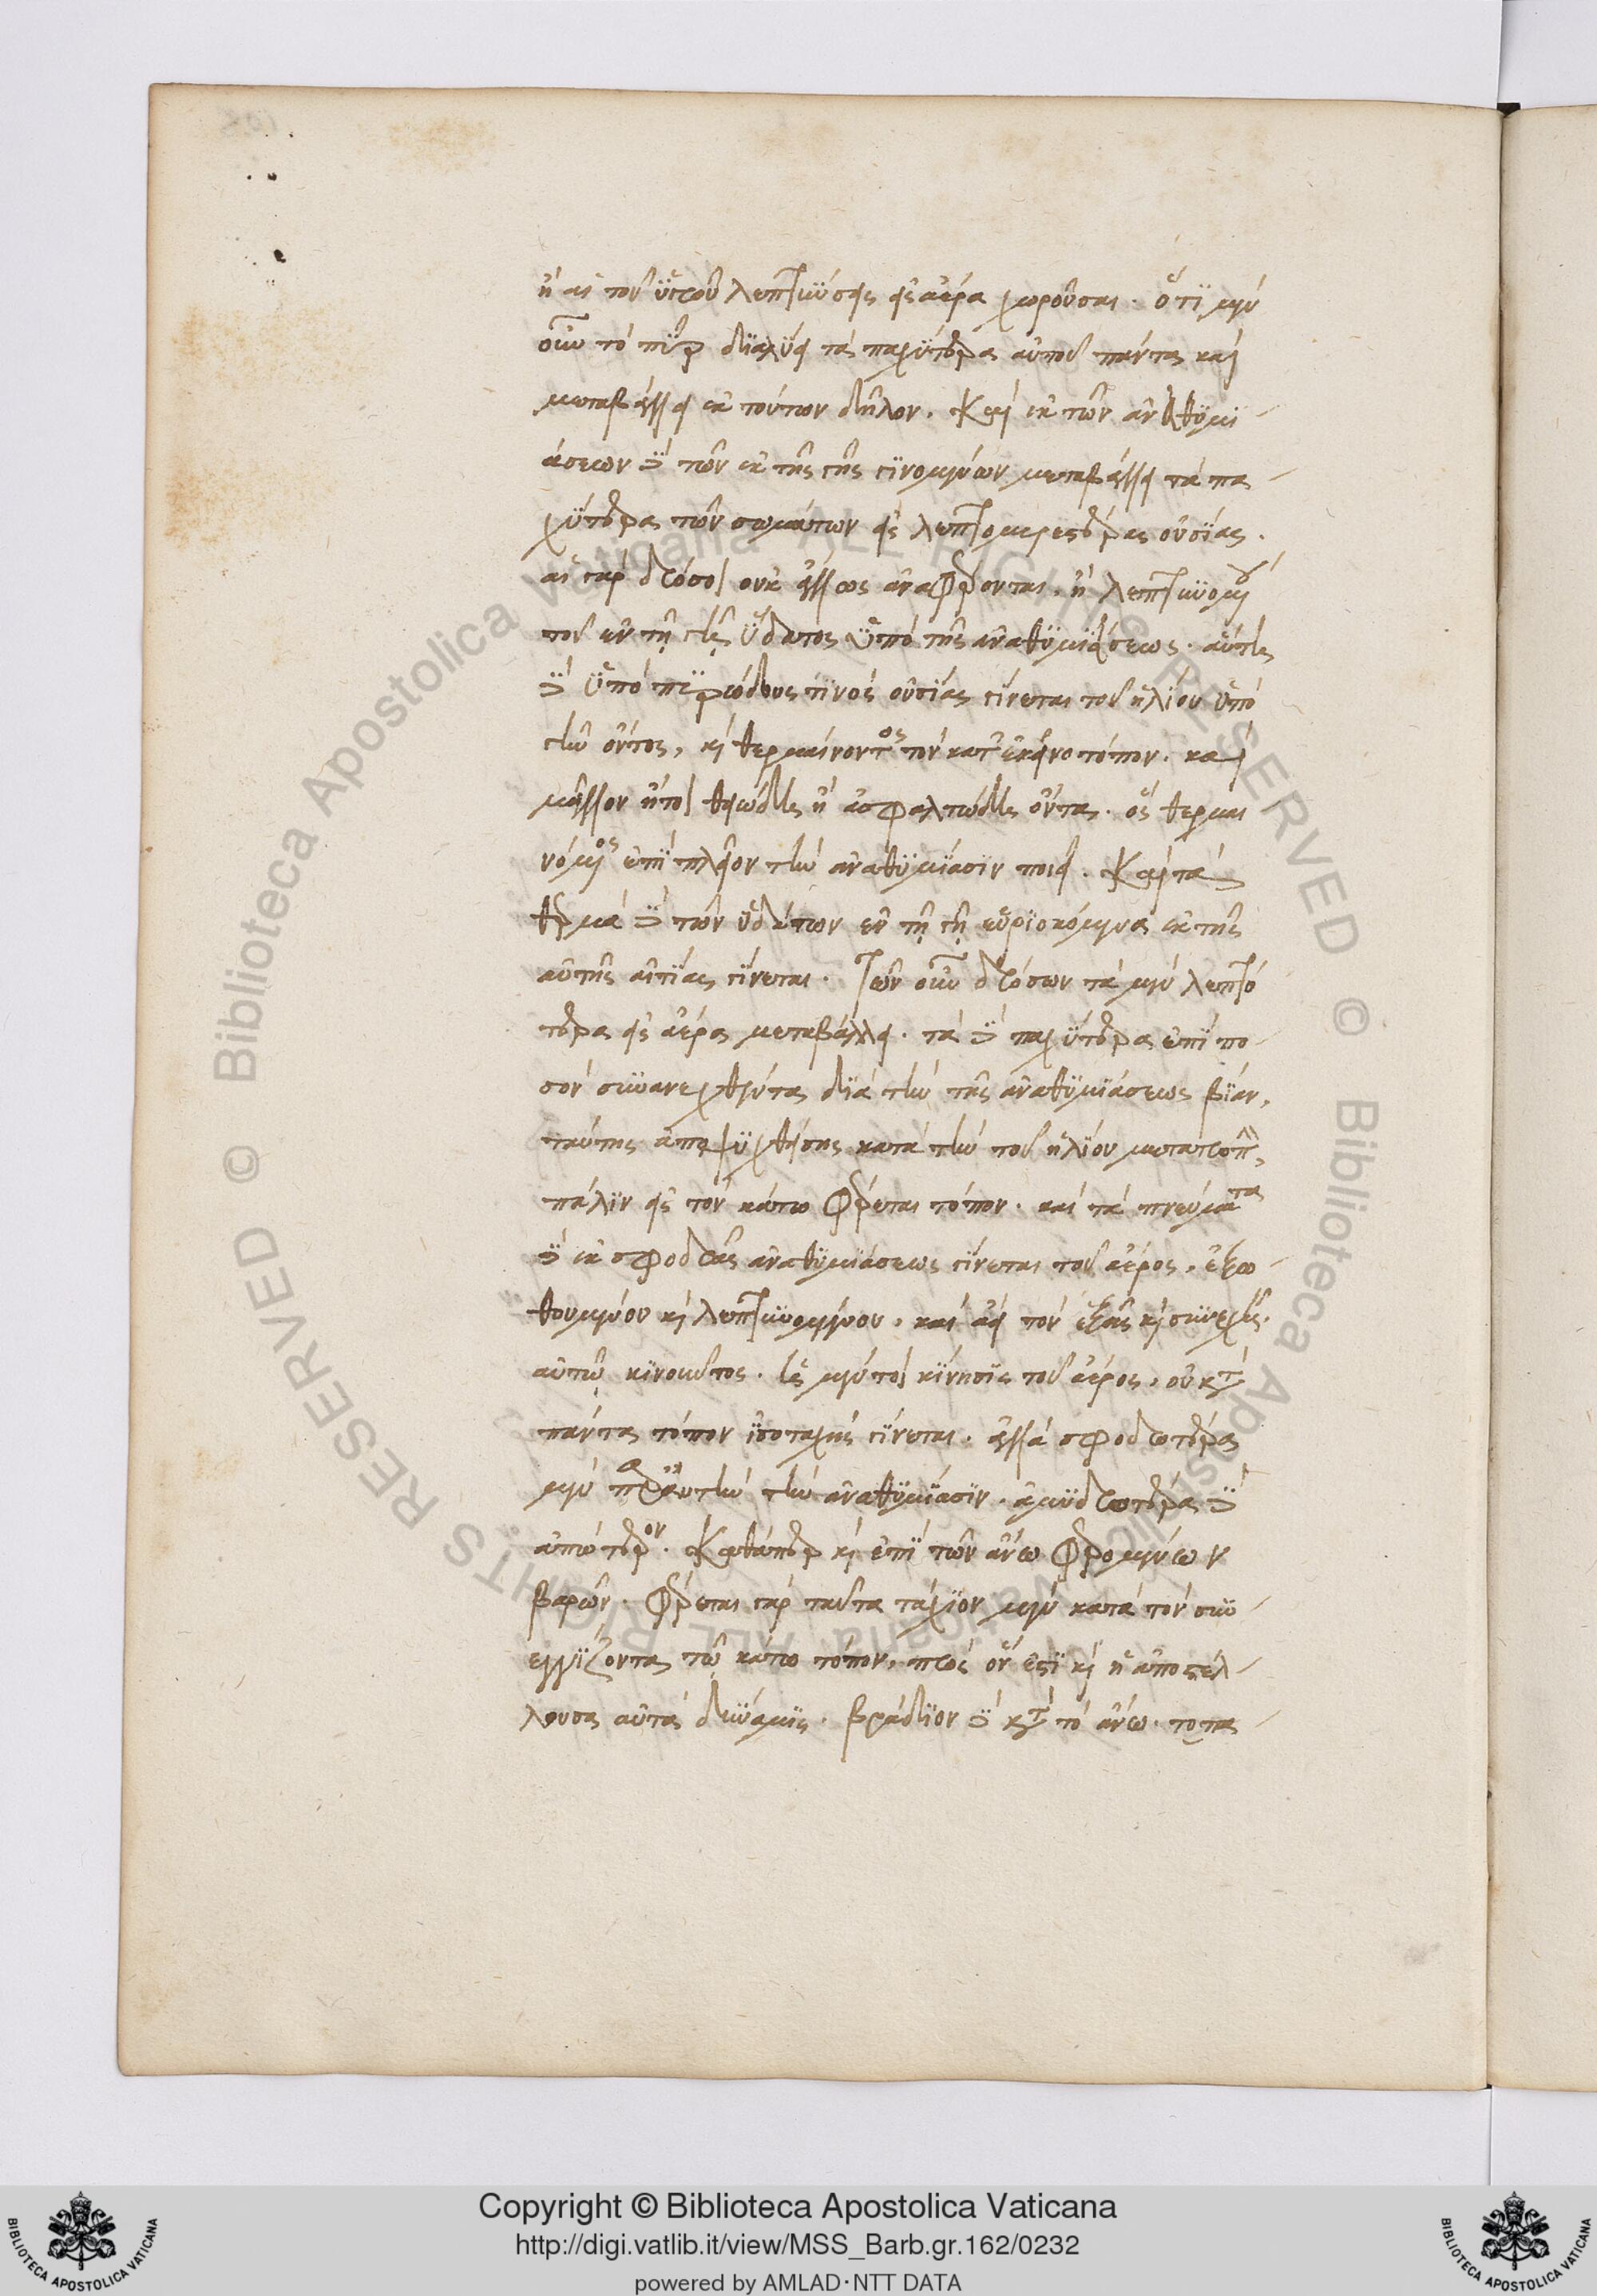 ἢ αἱ τοῦ ὑγροῦ λεπτύνσεις εἰς ἀέρα χωροῦσαι. ὅτι μὲν
οὖν τὸ πῦρ διαλύει τὰ παχύτερα αὐτοῦ πάντα καὶ
μεταβάλλει ἐκ τούτων δῆλον. Καὶ ἐκ τῶν ἀναθυμι-
άσεων δὲ τῶν ἐκ τῆς γῆς γινομένων μεταβάλλει τὰ πα-
χύτερα τῶν σωμάτων εἰς λεπτομερεστέρας οὐσίας.
αἱ γὰρ δρόσοι οὐκ ἄλλως ἀναφέρονται, ἢ λεπτυνομένου
τοῦ ἐν τῇ γῇ ὕδατος ὑπὸ τῆς ἀναθυμιάσεως. αὕτη
δὲ ὑπὸ πυρώδους τινὸς οὐσίας γίνεται τοῦ ἡλίου ὑπὸ
γῆν ὄντος, καὶ θερμαίνοντος τὸν κατ' ἐκεῖνο τόπον. καὶ
μᾶλλον ἤτοι θειώδη ἢ ἀσφαλτώδη ὄντα. ὃς θερμαι
νόμενος ἐπὶ πλεῖον τὴν ἀναθυμίασιν ποιεῖ. Καὶ τὰ
θερμὰ δὲ τῶν ὑδάτων ἐν τῇ γῇ εὑρισκόμενα ἐκ τῆς
αὐτῆς αἰτίας γίνεται. Τῶν οὖν δρόσων τὰ μὲν λεπτό
τερα εἰς ἀέρα μεταβάλλει. τὰ δὲ παχύτερα ἐπὶ πο-
σὸν συνανεχθέντα διὰ τὴν τῆς ἀναθυμιάσεως βίαν,
ταύτης ἀποψυχθείσης κατὰ τὴν τοῦ ἡλίου μετατροπὴν,
πάλιν εἰς τὸν κάτω φέρεται τόπον. καὶ τὰ πνεύματα
δὲ ἐκ σφοδρᾶς ἀναθυμιάσεως γίνεται τοῦ ἀέρος, ἐξω-
θουμένου καὶ λεπτυνομένου, καὶ ἀεὶ τὸν ἑξῆς καὶ συνεχῆ
αὐτῷ κινοῦντος. ἡ μέντοι κίνησις τοῦ ἀέρος, οὐ κατὰ
πάντα τόπον ἰσοταχὴς γίνεται. ἀλλὰ σφοδροτέρα
μὲν παρ' αὐτὴν τὴν ἀναθυμίασιν. ἀμυδροτέρα δὲ
ἀπώτερον. Καθάπερ καὶ ἐπὶ τῶν ἄνω φερομένων
βαρῶν. φέρεται γὰρ ταῦτα τάχιον μὲν κατὰ τὸν συν-
εγγίζοντα τῷ κάτω τόπον, πρὸς ὃν ἐστὶ καὶ ἡ ἀποστέλ-
λουσα αὐτὰ δύναμις. βράδιον δὲ κατὰ τὸ ἄνω. το πα-
Copyright © Biblioteca Apostolica Vaticana
http://digi.vatlib.it/view/MSS_Barb.gr.162/0232
powered by AMLAD·NTT DATA